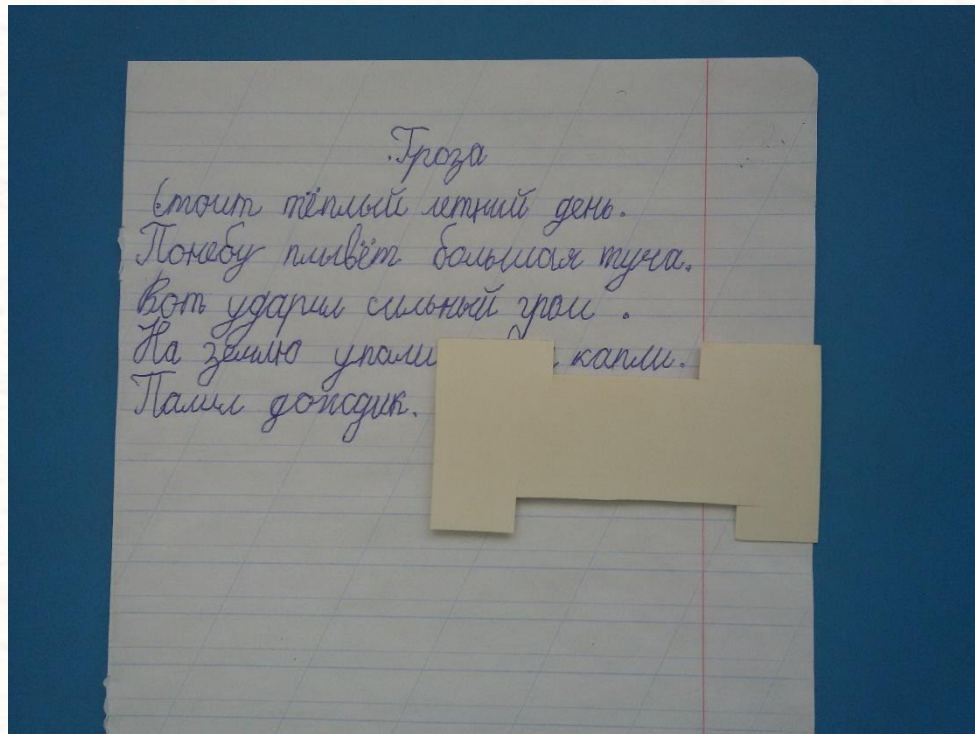 Гроза
Стоит тёплый летний день.
Понебу плывёт большая туча.
Вот ударил сильный гром.
На землю упали капли.
Палил дождик.